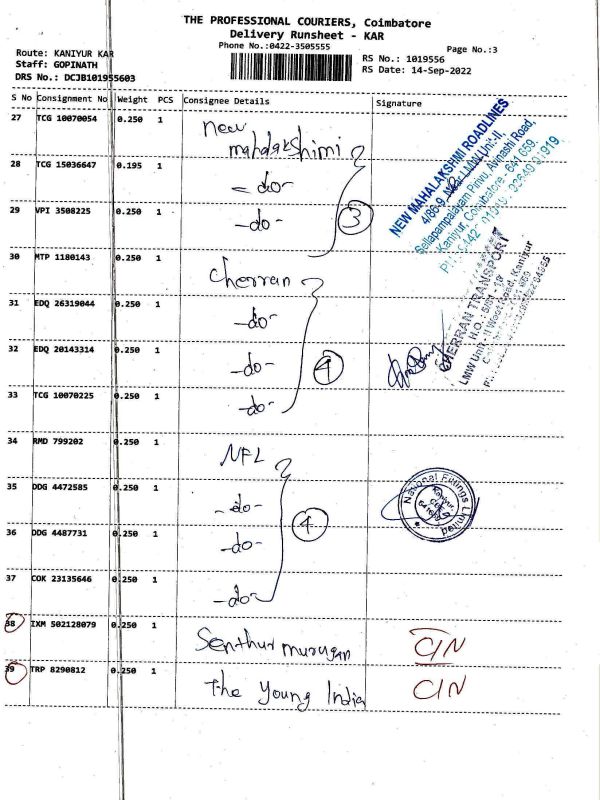 THE PROFESSIONAL COURIERS, Coimbatore
Delivery Runsheet - KAR
Phone No.:0422-3505555
Page No.:3
Route: KANIYUR KAR
Staff: GOPINATH
DRS No.: DCJB101955603
RS No.: 1019556
RS Date: 14-Sep-2022
S No Consignment No Weight PCS Consignee Details Signature
27 TCG 10070054 0.250 1 New mahalakshimi
28 TCG 15036647 0.195 1 -do-
29 VPI 3508225 0.250 1 -do-
3
NEW MAHALAKSHMI ROADLINES
4/86-9, Near LMW Unit-II,
Sellapampalayam Pirivu, Avinashi Road,
Kaniyur, Coimbatore - 641 659.
30 MTP 1180143 0.250 1 Cherran
31 EDQ 26319044 0.250 1 -do-
32 EDQ 20143314 0.250 1 -do-
33 TCG 10070225 0.250 1 -do-
4
CHERRAN TRANSPORT
LMW Unit - II West Road, Kaniyur
34 RMD 799202 0.250 1 NFL
35 DDG 4472585 0.250 1 -do-
36 DDG 4487731 0.250 1 -do-
37 COK 23135646 0.250 1 -do-
4
National Fittings Limited
38 IXM 502128079 0.250 1 Senthur murugan C/N
39 TRP 8290812 0.250 1 The Young India C/N